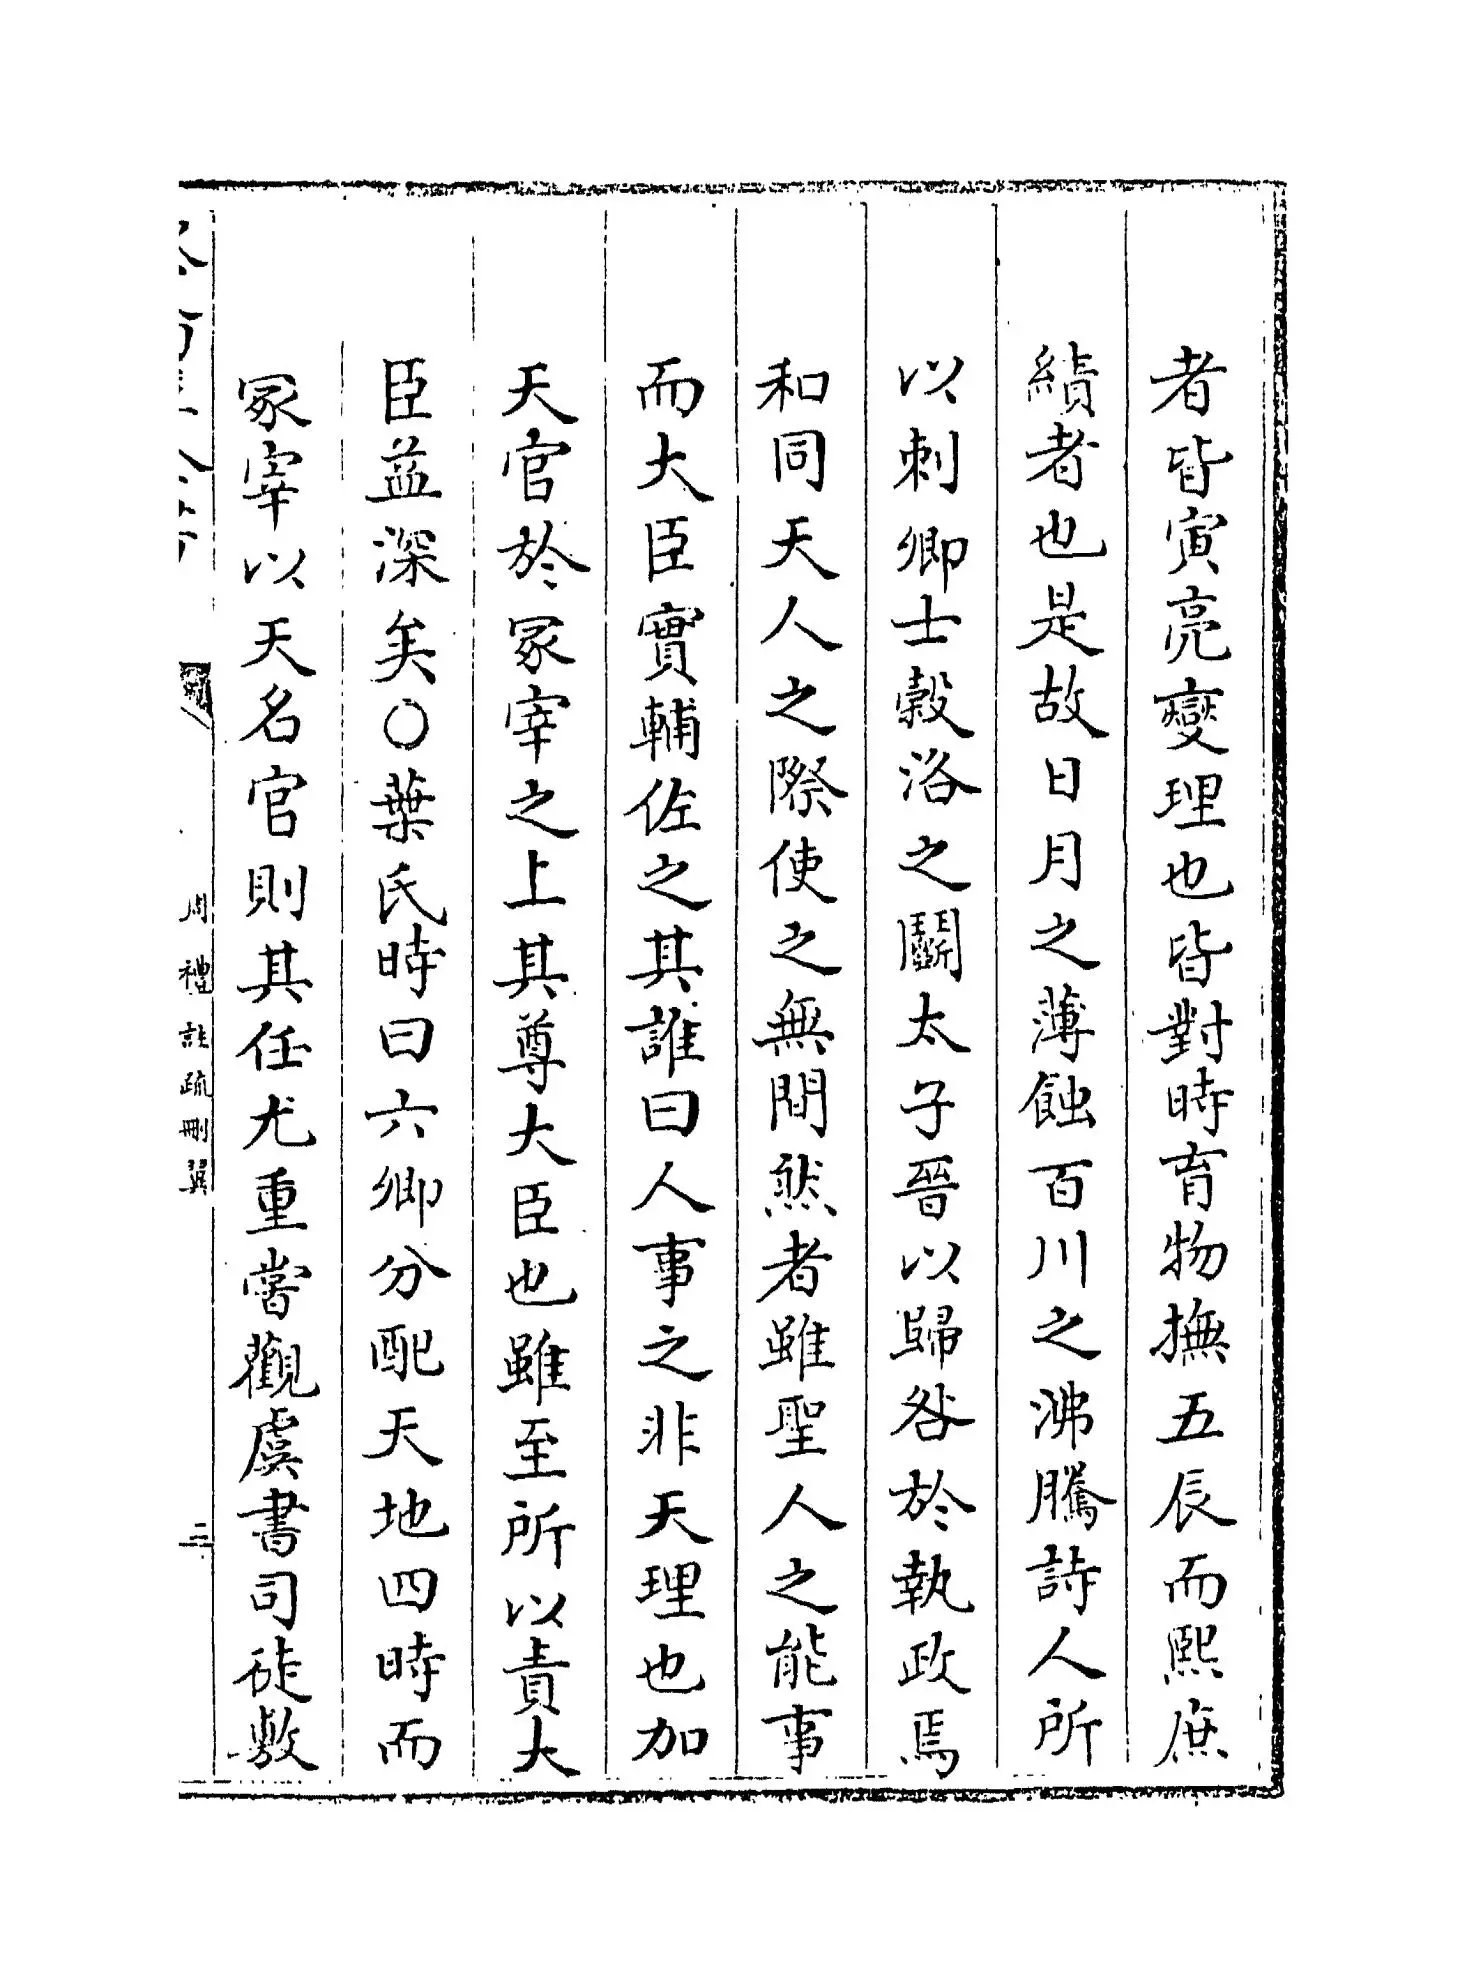 者皆寅亮變理也皆對時育物撫五辰而熙庶
績者也是故日月之薄蝕百川之沸騰詩人所
以刺卿士穀洛之鬭太子晉以歸咎於執政焉
和同天人之際使之無間然者雖聖人之能事
而大臣實輔佐之其誰曰人事之非天理也加
天官於冢宰之上其尊大臣也雖至所以責大
臣益深矣○葉氏時曰六卿分配天地四時而
冢宰以天名官則其任尤重嘗觀虞書司徒敷
周禮註疏刪翼
二